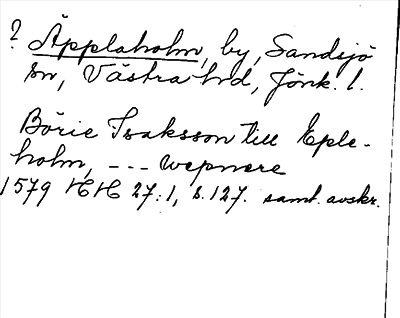 ? Äpplaholm, by, Sandsjö
sn, Västra hd, Jönk. l.
Börie Isaksson till Eple-
holm, --- wepnere
1579 HH 27:1, s. 127. saml. avskr.